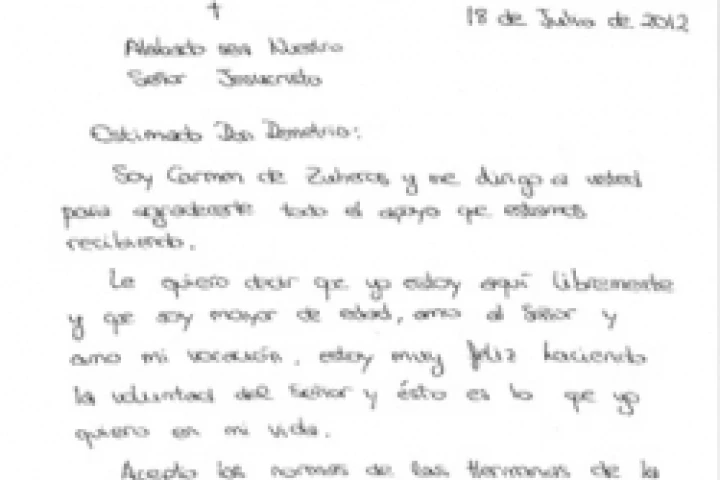 18 de Julio de 2012
Alabado sea Nuestro
Señor Jesucristo
Estimado Don Demetrio:
Soy Carmen de Zuheros y me dirijo a usted
para agradecerte todo el apoyo que estamos
recibiendo.
Le quiero decir que yo estoy aquí libremente
y que soy mayor de edad, amo al Señor y
amo mi vocación, estoy muy feliz haciendo
la voluntad del Señor y ésto es lo que yo
quiero en mi vida.
Acepto las normas de las Hermanas de la